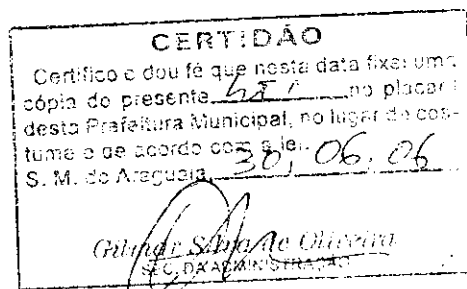 CERTIDÃO
Certifico e dou fé que nesta data fixei uma
cópia do presente Lei no placar
desta Prefeitura Municipal, no lugar de cos-
tume e de acordo com a lei.
S. M. do Araguaia, 30, 06, 06
Gilmar Silva de Oliveira
SEC. DA ADMINISTRAÇÃO